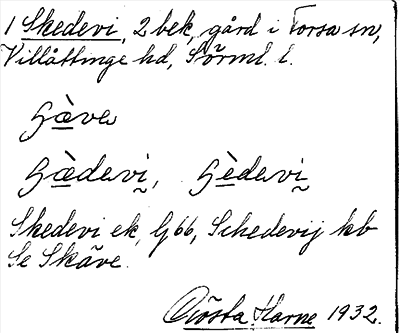 1 Skedevi, 2 bek, gård i Forsa sn,
Villåttinge hd, Sörml. l.
Hæve
Hædevi, Hèdevi
Skedevi ek, G66, Schedevij kb
Se Skäve.
Gösta Harne 1932.